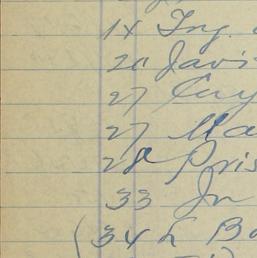 14 Ing.
20 Javis
27 Guy
27 Ma
28 Pris
33 In
(34 L Bo